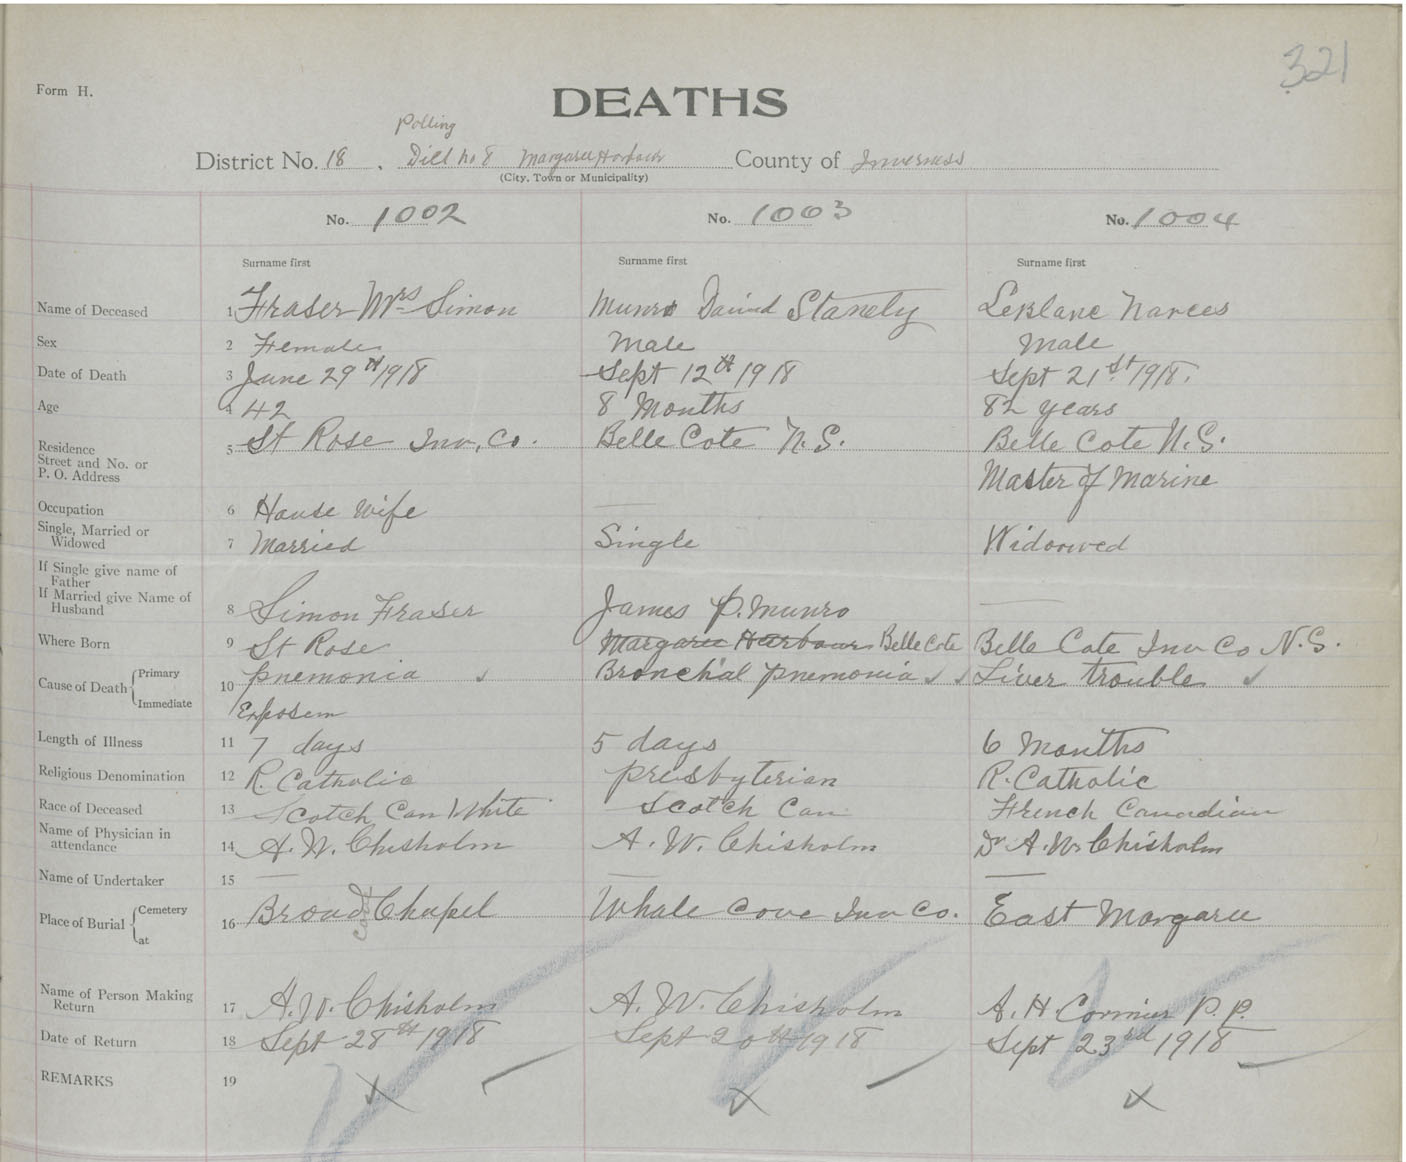 321
Form H.
DEATHS
Polling
District No. 18, Dist no 8 Margaree Harbour County of Inverness
(City, Town or Municipality)
No. 1002 No. 1003 No. 1004
Surname first Surname first Surname first
Name of Deceased 1 Fraser Mrs Simon Munro David Stanely LeBlanc Narces
Sex 2 Female Male Male
Date of Death 3 June 29th 1918 Sept 12th 1918 Sept 21st 1918.
Age 4 42 8 Months 82 years
Residence Street and No. or P. O. Address 5 St Rose Inv, Co. Belle Cote N.S. Belle Cote N.S.
Master of Marine
Occupation 6 House wife —
Single, Married or Widowed 7 Married Single Widowed
If Single give name of Father
If Married give Name of Husband 8 Simon Fraser James P. Munro —
Where Born 9 St Rose Margaree Harbour Belle Cote Belle Cote Inv Co N.S.
Cause of Death { Primary 10 pnemonia ✓ Bronchal pnemonia ✓ ✓ Liver trouble ✓
Immediate
Length of Illness 11 7 days 5 days 6 Months
Religious Denomination 12 R. Catholic presbyterian R. Catholic
Race of Deceased 13 Scotch Can White Scotch Can French Canadian
Name of Physician in attendance 14 A. W. Chisholm A. W. Chisholm Dr A. W. Chisholm
Name of Undertaker 15 — — —
Place of Burial { Cemetery at 16 Broad Cove Chapel Whale Cove Inv Co. East Margaree
Name of Person Making Return 17 A. W. Chisholm A. W. Chisholm A. H. Cormier P. P.
Date of Return 18 Sept 28th 1918 Sept 20th 1918 Sept 23rd 1918
REMARKS 19 X X X